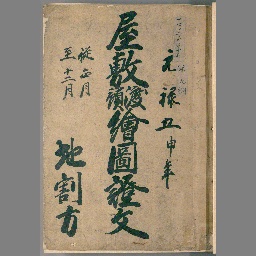 元禄五申年
屋敷渡預繪圖證文
從正月
至十二月
地割方